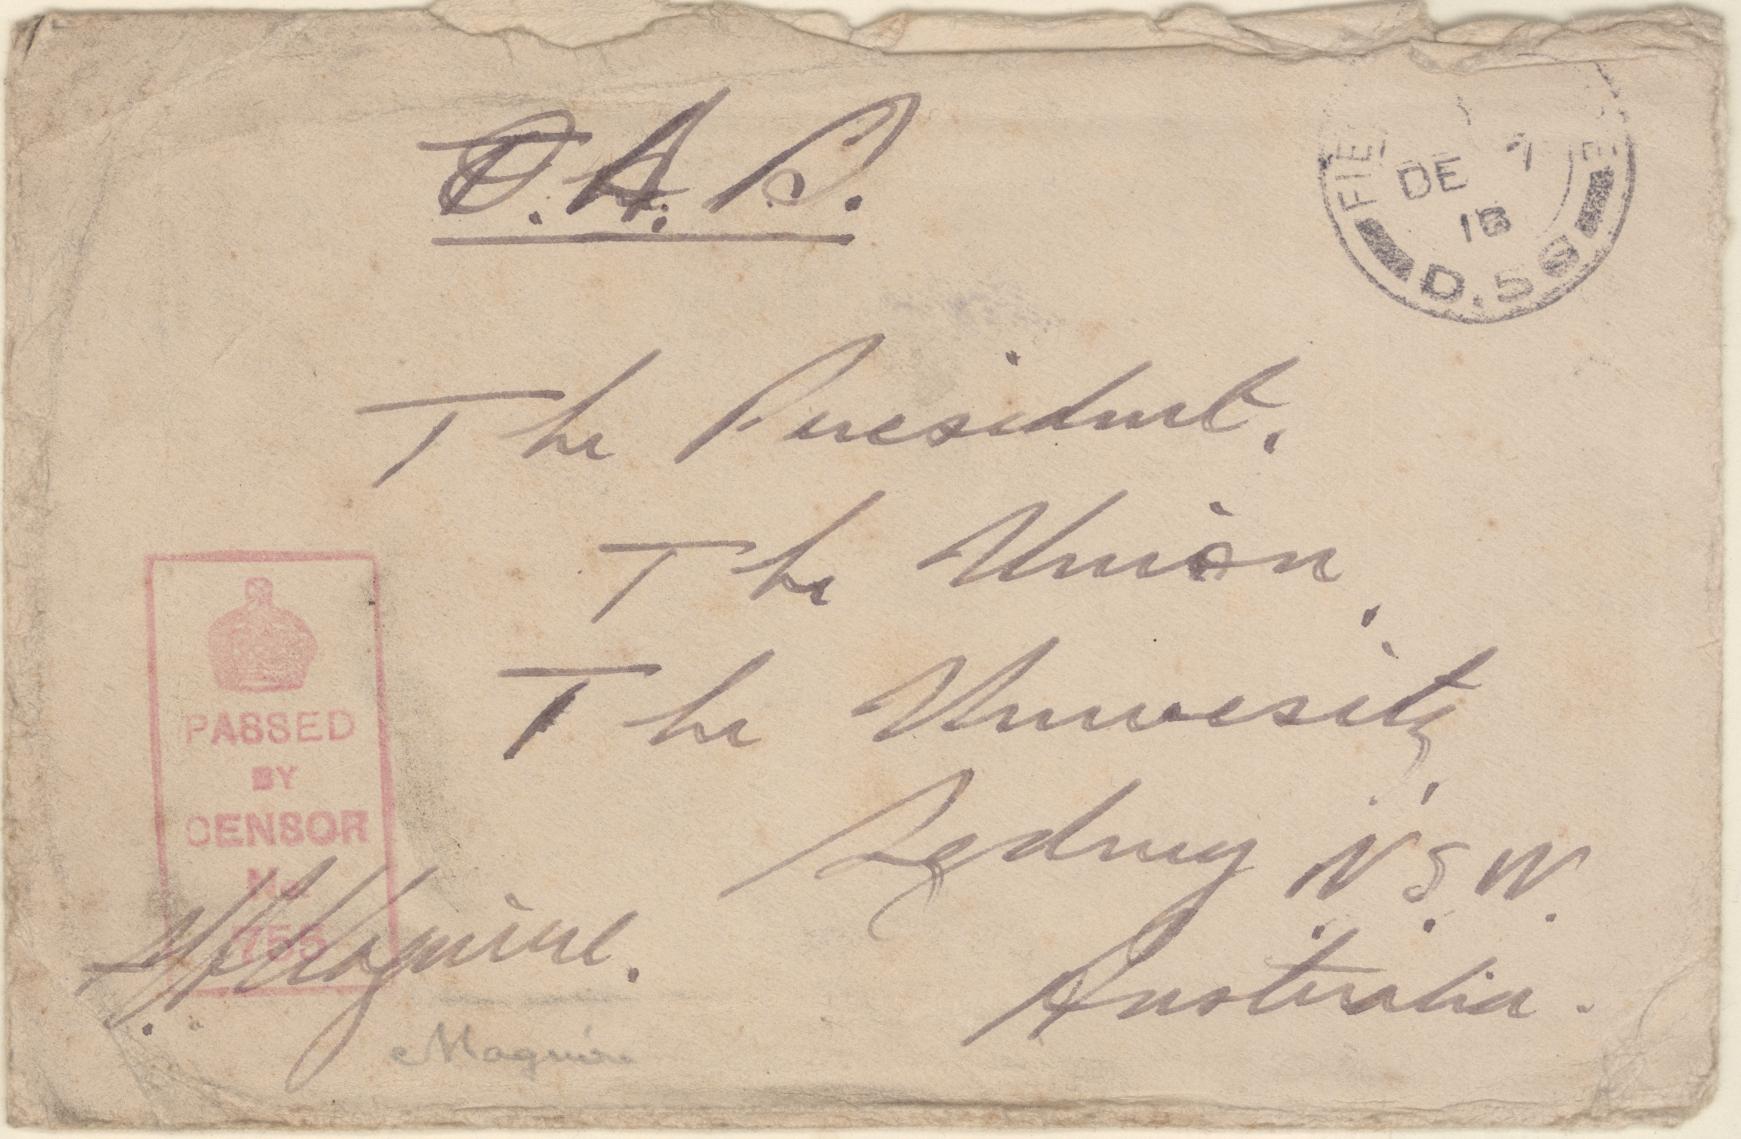 O.A.S.
FIE
DE 7
18
D.5
The President.
The Union,
The University,
Sydney N.S.W.
Australia.
PASSED
BY
CENSOR
No.
755
Maguire.
Maguire